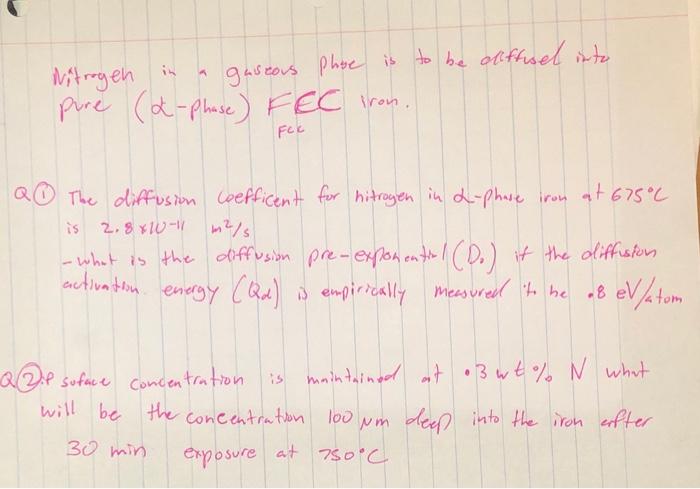 Nitrogen in a gaseous phase is to be diffused into
pure (α-phase) FCC iron.
FCC
Q① The diffusion coefficent for nitrogen in α-phase iron at 675°C
is 2.8x10-11 m²/s
- what is the diffusion pre-exponential (D₀) if the diffusion
activation energy (Qd) is empirically measured to be .8 eV/atom
Q② If surface concentration is maintained at .3 wt% N what
will be the concentration 100 μm deep into the iron after
30 min exposure at 750°C